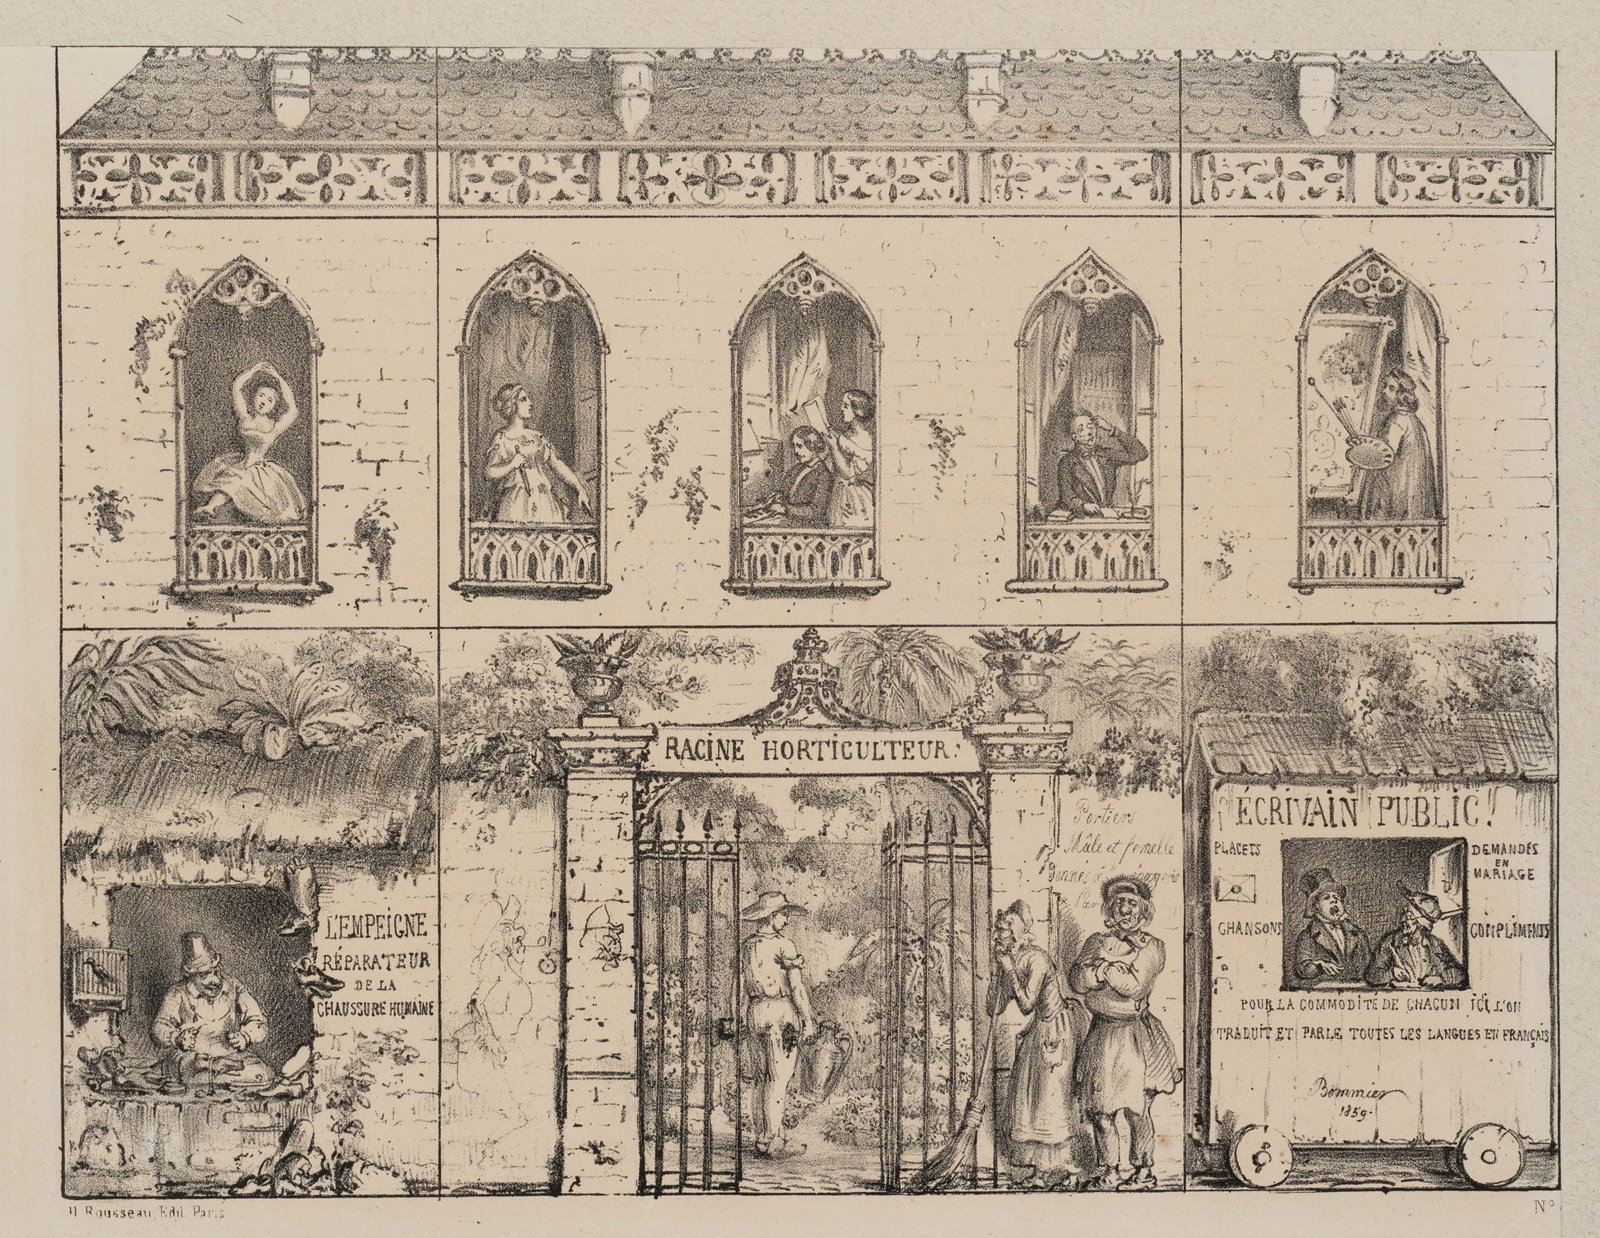 RACINE HORTICULTEUR.
Portiers
Mâle et femelle
L'EMPEIGNE
RÉPARATEUR
DE LA
CHAUSSURE HUMAINE
ÉCRIVAIN PUBLIC!
PLACETS
DEMANDES
EN
MARIAGE
CHANSONS
COMPLIMENTS
POUR LA COMMODITÉ DE CHACUN ICI L'ON
TRADUIT ET PARLE TOUTES LES LANGUES EN FRANÇAIS
Bommier
1859.
H. Rousseau, Edit. Paris
N°